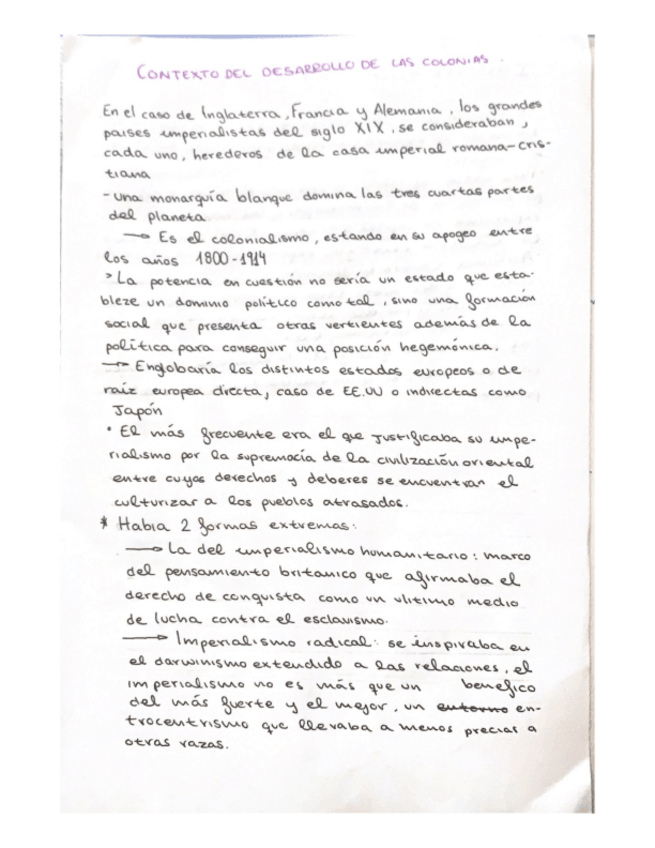 CONTEXTO DEL DESARROLLO DE LAS COLONIAS.
En el caso de Inglaterra, Francia y Alemania, los grandes
paises imperialistas del siglo XIX, se consideraban,
cada uno, herederos de la casa imperial romana-cris-
tiana
- Una monarquía blanque domina las tres cuartas partes
del planeta
→ Es el colonialismo, estando en su apogeo entre
los años 1800-1914
> La potencia en cuestión no sería un estado que esta-
bleze un dominio político como tal, sino una formación
social que presenta otras vertientes además de la
política para conseguir una posición hegemónica.
→ Englobaría los distintos estados europeos o de
raíz europea directa, caso de EE.UU o indirectas como
Japón
• El más frecuente era el que justificaba su impe-
rialismo por la supremacía de la civilización oriental
entre cuyos derechos y deberes se encuentran el
culturizar a los pueblos atrasados.
* Habia 2 formas extremas:
→ La del imperialismo humanitario: marco
del pensamiento britanico que afirmaba el
derecho de conquista como un ulitimo medio
de lucha contra el esclavismo.
→ Imperialismo radical: se inspiraba en
el darwinismo extendido a las relaciones, el
imperialismo no es más que un benefico
del más fuerte y el mejor, un entorno en-
trocentrismo que llevaba a menos preciar a
otras razas.